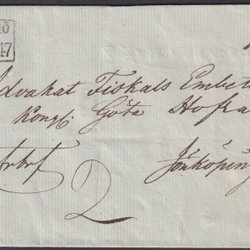 47
Advokat Fiskals Embe
Kongl. Göta Hofrä
Frbrf
Jönköping
2